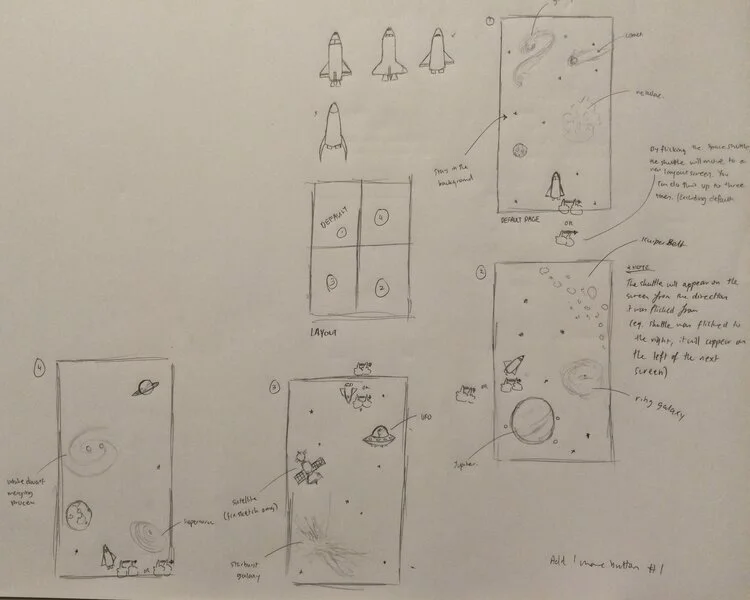 ①
comet
nebulae
stars in the
background
DEFAULT PAGE
OR
By flicking the space shuttle
the shuttle will move to a
new layout screen. You
can do this up to three
times. (Excluding default
DEFAULT
①
④
③
②
LAYOUT
②
Kuiper Belt
OR
ring galaxy
Jupiter.
* NOTE
The shuttle will appear on the
screen from the direction
it was flicked from
(eg. shuttle was flicked to
the right, it will appear on
the left of the next
screen)
③
OR
UFO
satellite
Starburst
galaxy
④
white dwarf
merging
process
supernova
OR
Add 1 more button #1